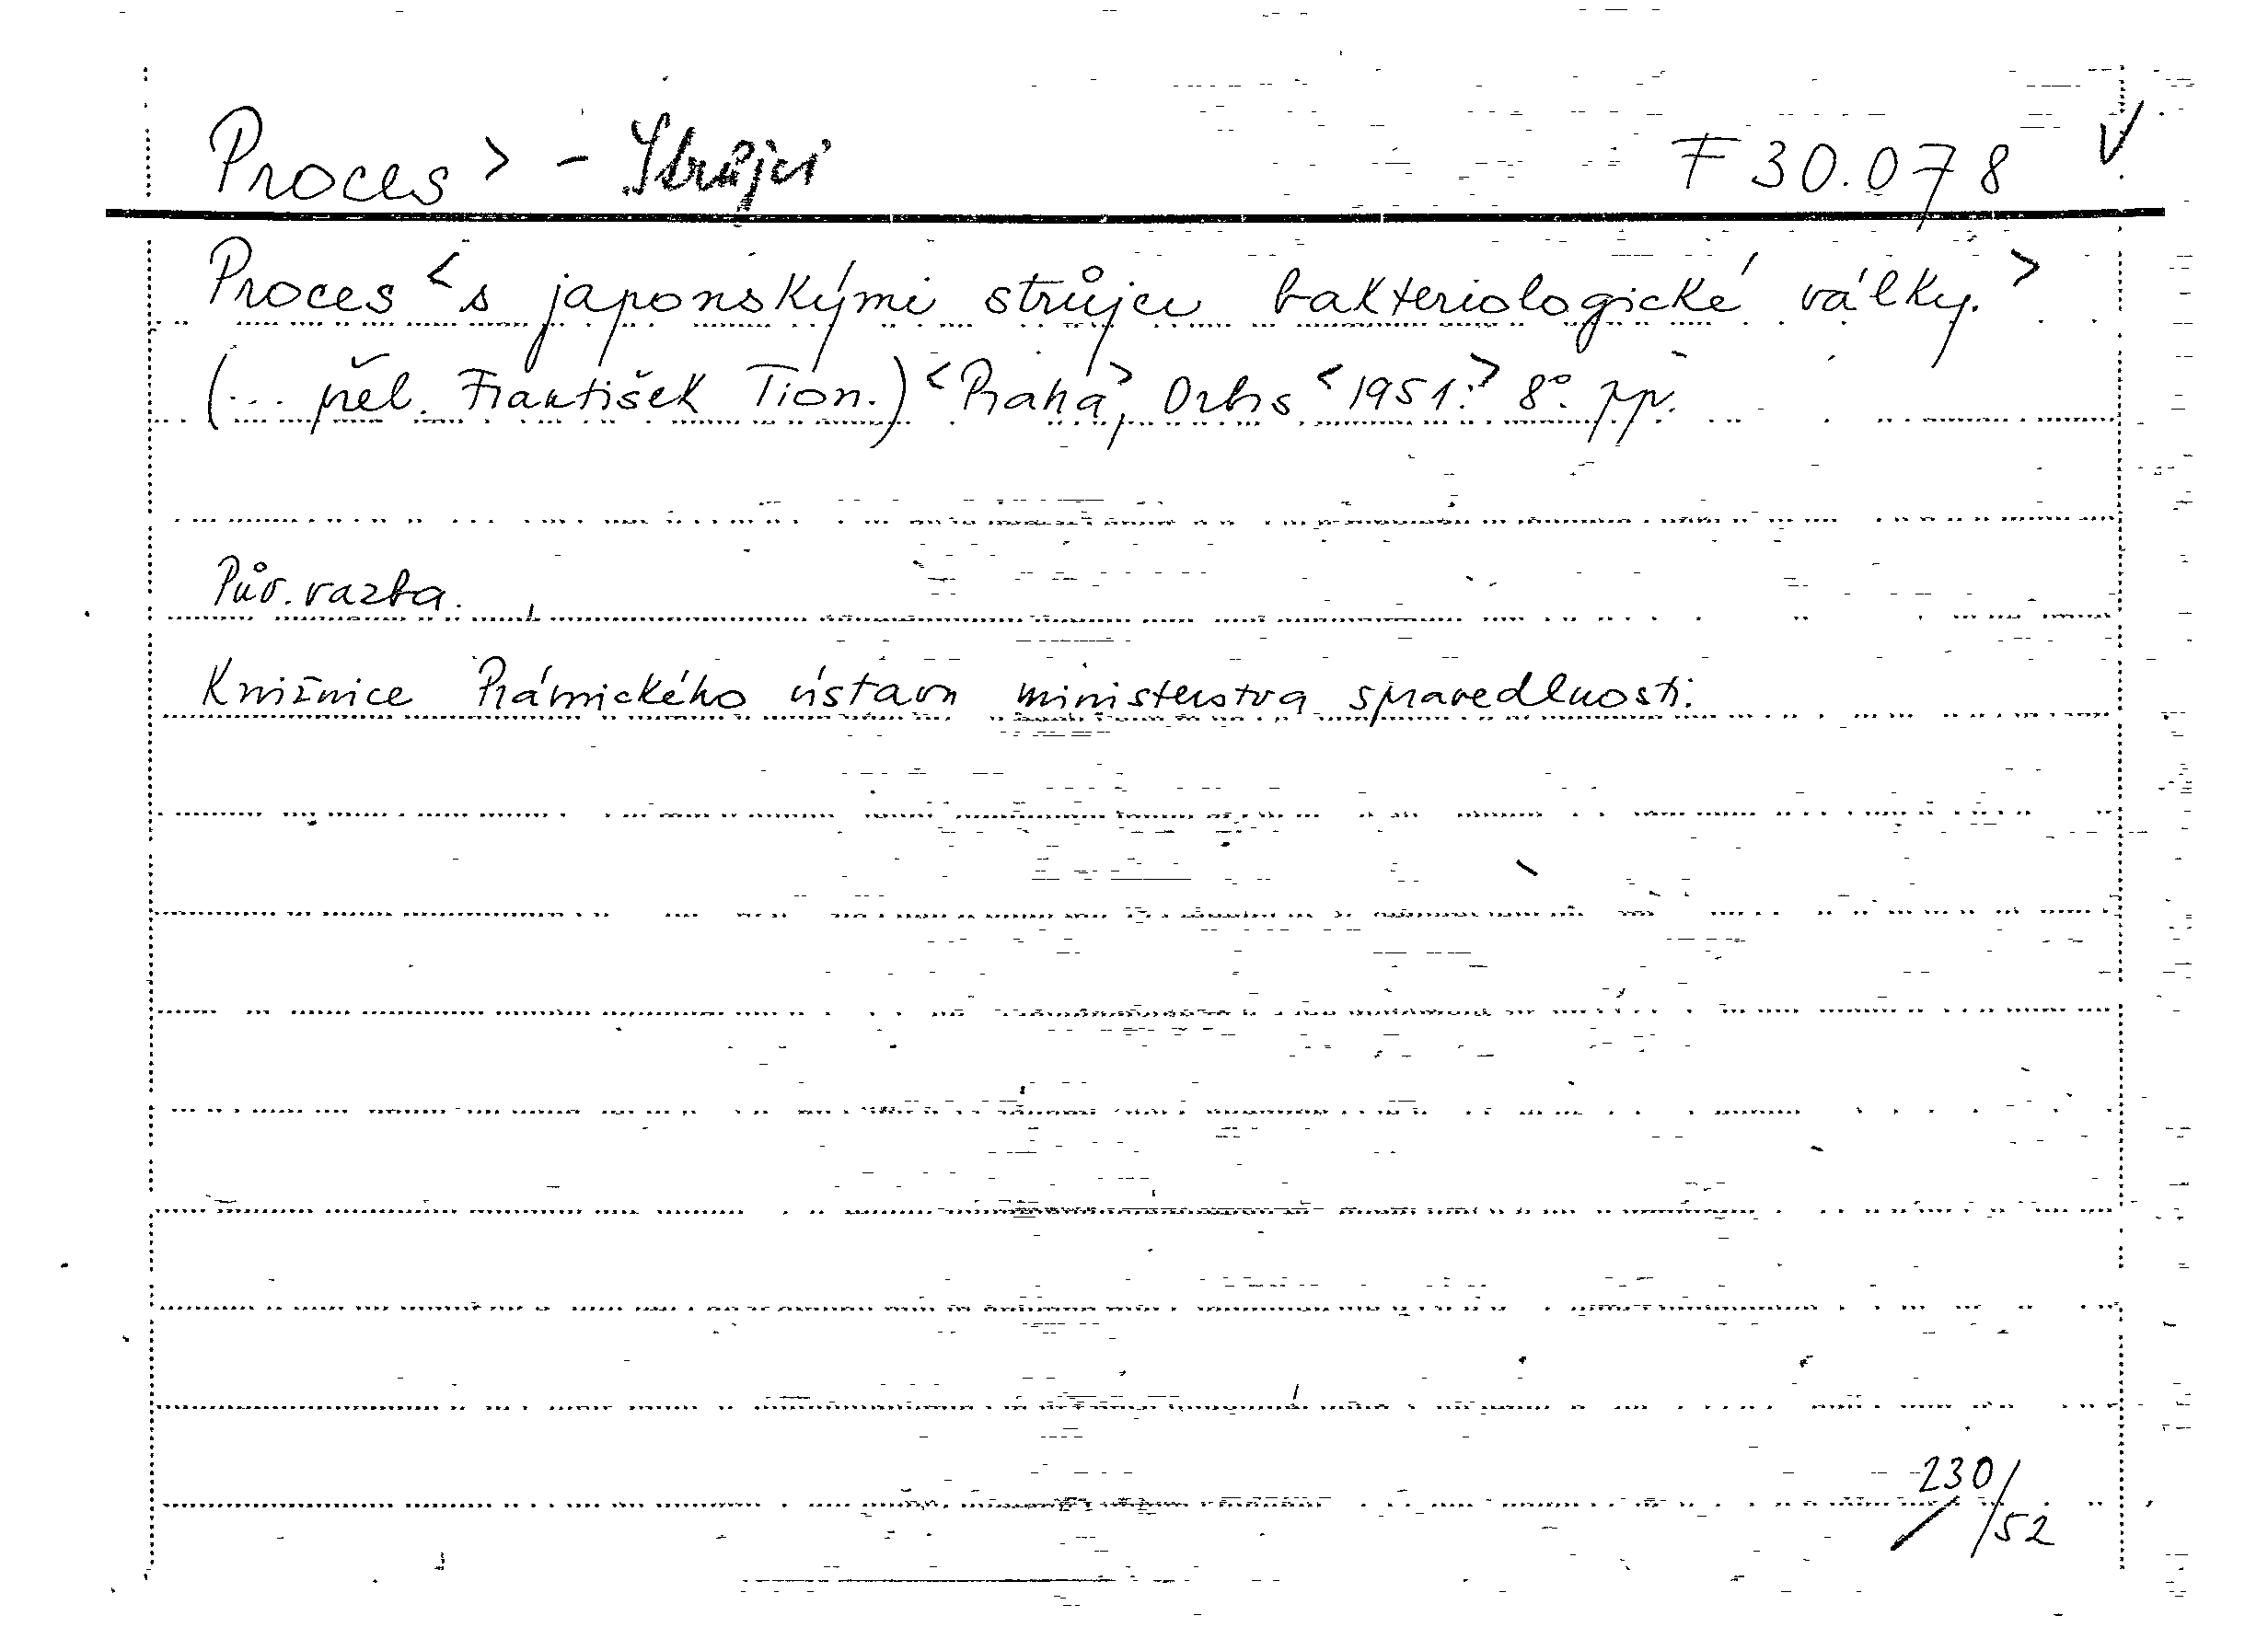 Proces > - Strůjci F 30.078 V
Proces < s japonskými strůjci bakteriologické války. >
(... přel. František Tion.) < Praha >, Orbis < 1951. > 8°. pp.
Pův. vazba.
Knižnice Právnického ústavu ministerstva spravedlnosti.
230/52